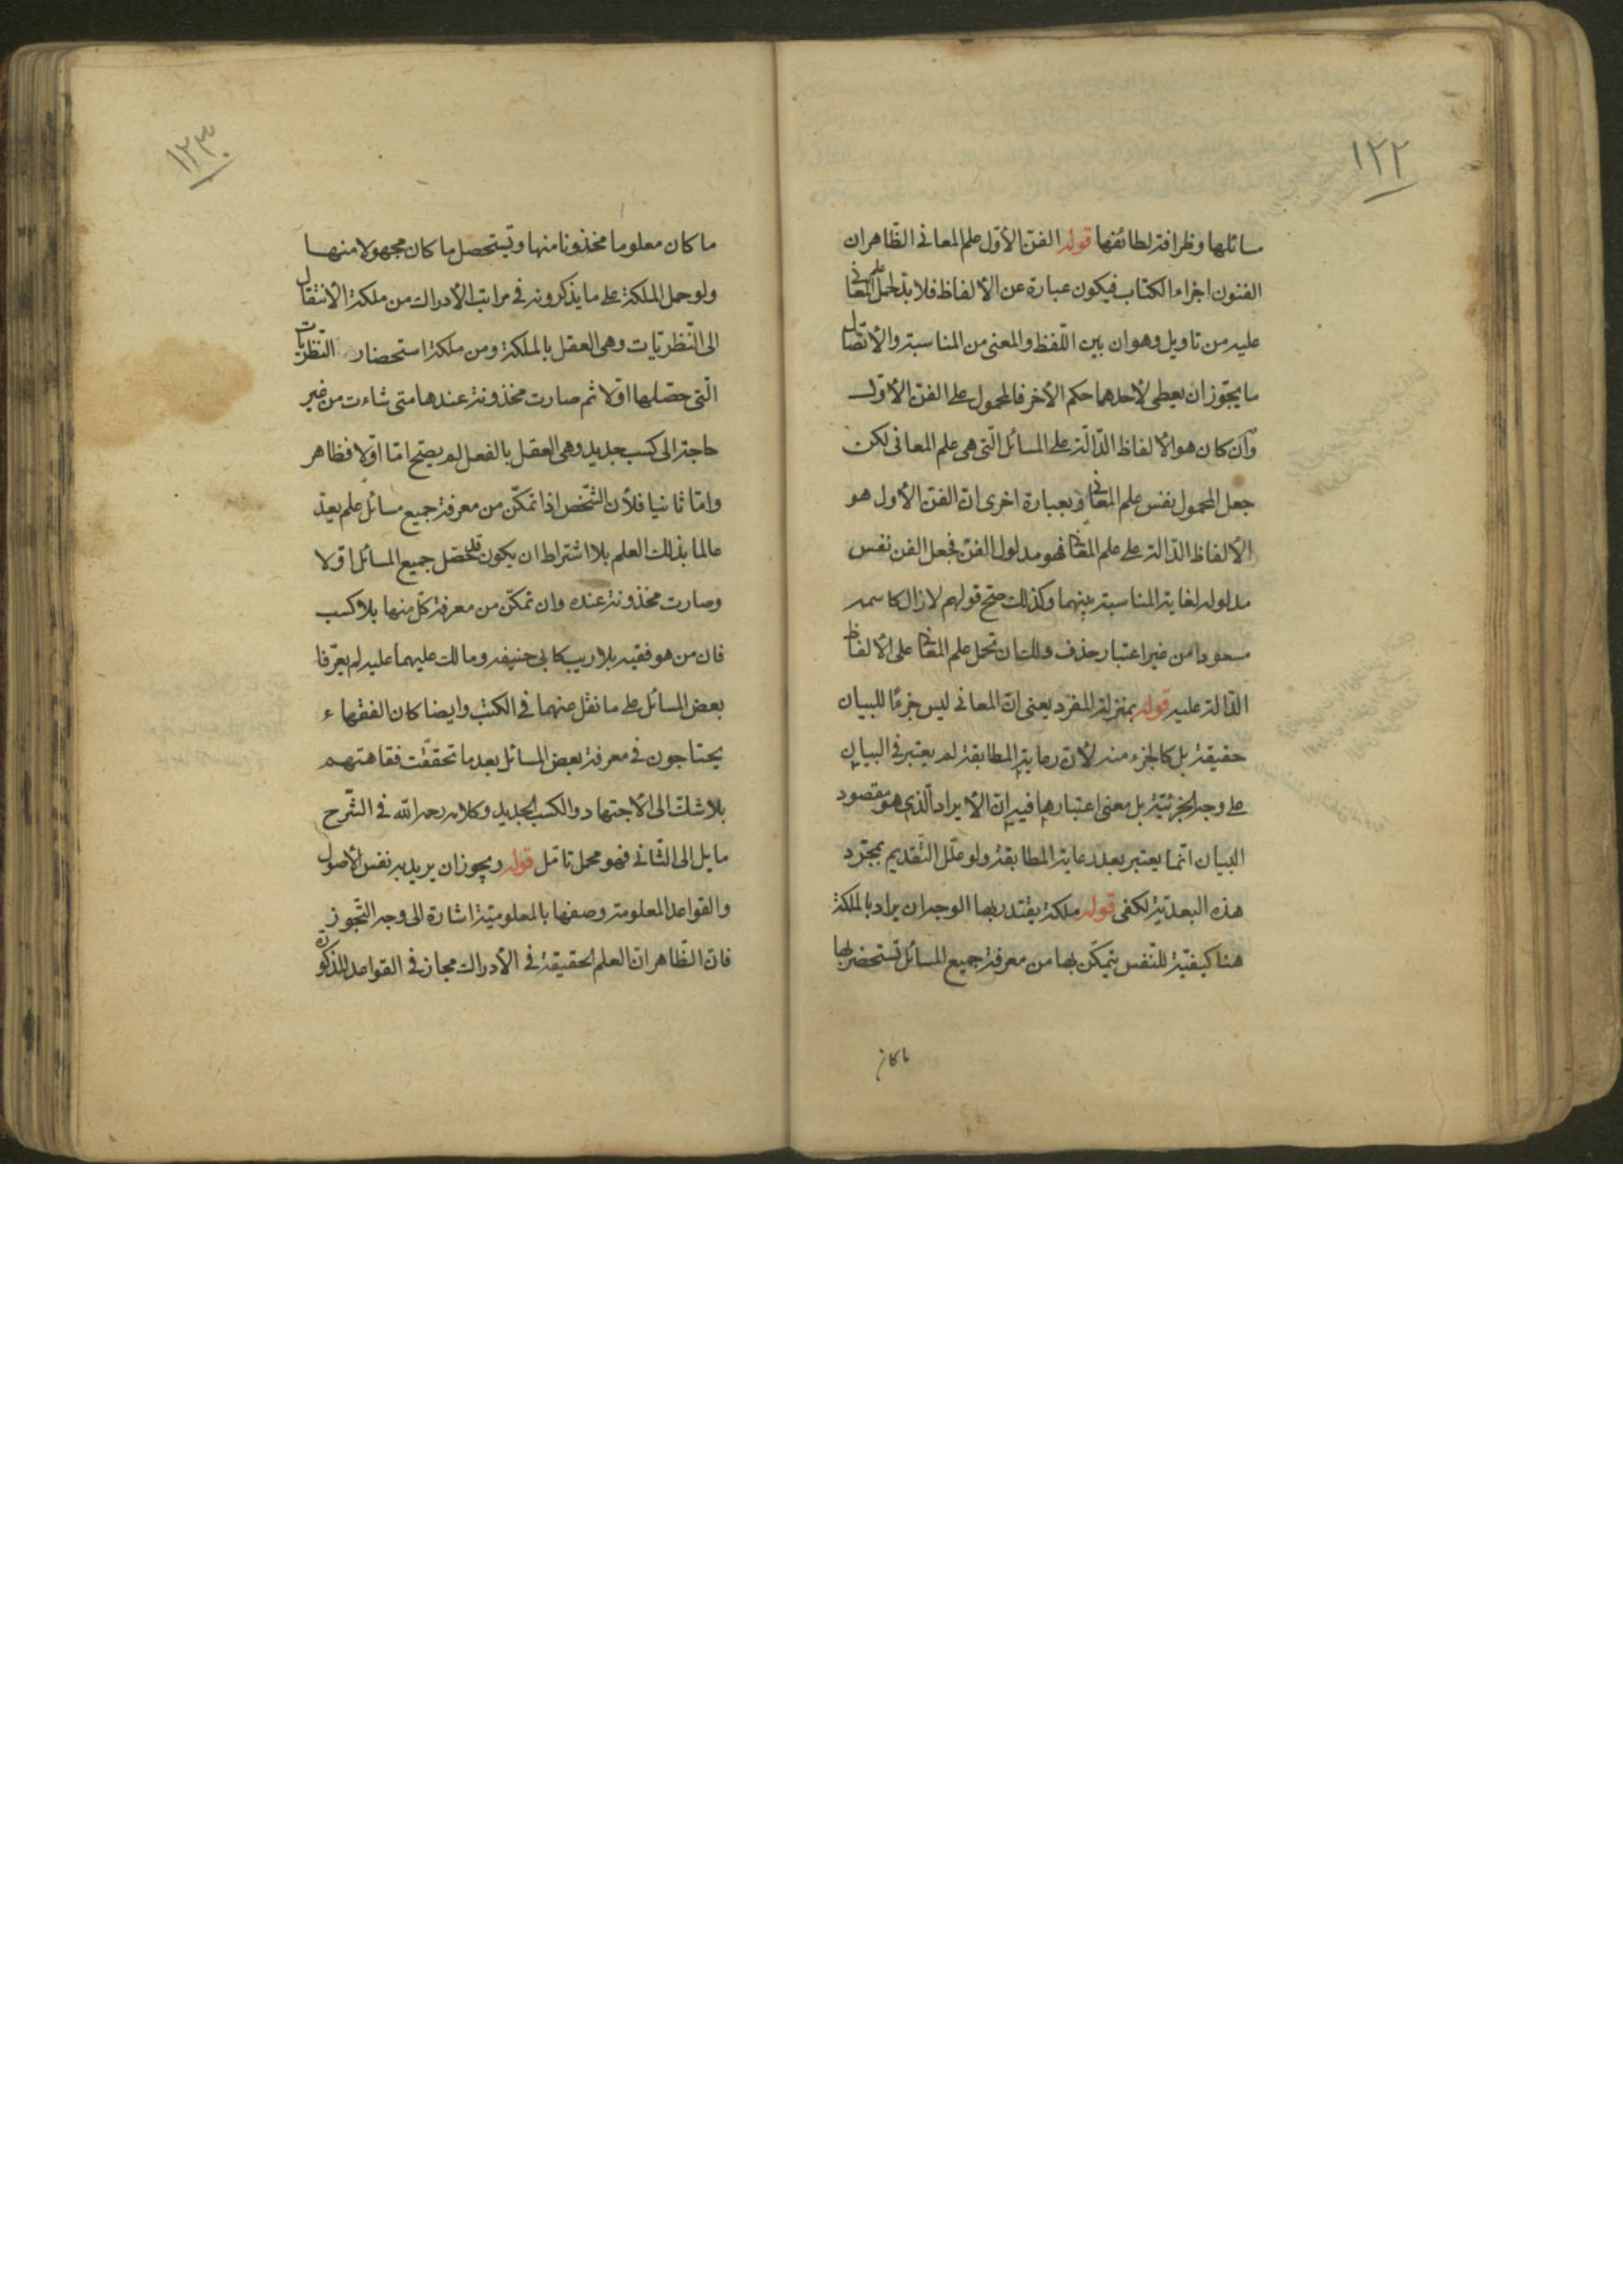 ١٢٢
مسائلها وظرافة لطائفها قوله الفنّ الأوّل علم المعانى الظّاهر ان
الفنون اجزاء الكتاب فيكون عبارة عن الألفاظ فلا بدّ لحمل علم المعانى
عليه من تاويل وهو ان بين اللّفظ والمعنى من المناسبة والأتّصال
ما يجّوز ان يعطى لأحدهما حكم الأخر فالمحمول على الفنّ الأوّل
وان كان هو الألفاظ الدّالّة على المسائل الّتى هى علم المعانى لكن
جعل المحمول نفس علم المعانى وبعبارة اخرى انّ الفنّ الأول هو
الألفاظ الدّالة على علم المعانى فهو مدلول الفنّ فجعل الفن نفس
مدلوله لغاية المناسبة بينهما وكذلك صحّ قولهم لا زال كاسمه
مسعودا من غير اعتبار حذف ولك ان تحمل علم المعانى على الألفاظ
الدّالة عليه قوله بمنزلة المفرد يعنى انّ المعانى ليس جزءًا للبيان
حقيقة بل كالجزء منه لأنّ رعاية المطابقة لم يعتبر فى البيان
على وجه الجزئيّة بل معنى اعتبارها فيه انّ الأيراد الّذى هو مقصود
البيان انّما يعتبر بعد رعاية المطابقة ولو علّل التّقديم بمجّرد
هذه البعديّة لكفى قوله ملكة يقتدر بها الوجه ان يراد بالملكة
هنا كيفيّة للنّفس يتمكّن بها من معرفة جميع المسائل تستحضر بها
ما كان
١٢٣
ما كان معلوما مخزونا منها وتستحصل ما كان مجهولا منها
ولو حمل الملكة على ما يذكرونه فى مراتب الأدراك من ملكة الأنتقال
الى النّظريّات وهى العقل بالملكة ومن ملكة استحضار النّظريّات
الّتى حصّلها اوّلا ثم صارت مخزونة عندها متى شاءت من غير
حاجة الى كسب جديد وهى العقل بالفعل لم يصّح امّا اوّلا فظاهر
وامّا ثانيا فلأن الشّخص اذا تمكّن من معرفة جميع مسائل علم يعدّ
عالما بذلك العلم بلا اشتراط ان يكون قد حصّل جميع المسائل اوّلا
وصارت مخزونة عنده وان تمكّن من معرفة كلّ منها بلا كسب
فان من هو فقيه بلا ريب كابى حنيفة ومالك عليهما عليه لم يعّرفا
بعض المسائل على ما نقل عنهما فى الكتب وايضا كان الفقهاء
يحتاجون فى معرفة بعض المسائل بعد ما تحقّقت فقاهتهم
بلا شك الى الأجتهاد والكسب الجديد وكلامه رحمه الله فى الشّرح
مايل الى الثّانى فهو محل تامّل قوله ويجوز ان يريد به نفس الأصول
والقواعد المعلومة وصفها بالمعلوميّة اشارة الى وجه التّجّوز
فانّ الظّاهر انّ العلم لحقيقة فى الأدراك مجاز فى القواعد المذكورة